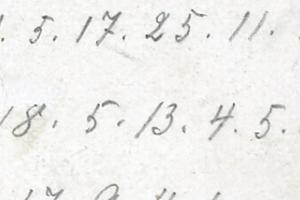 . 5. 17. 25. 11.
18. 5. 13. 4. 5.